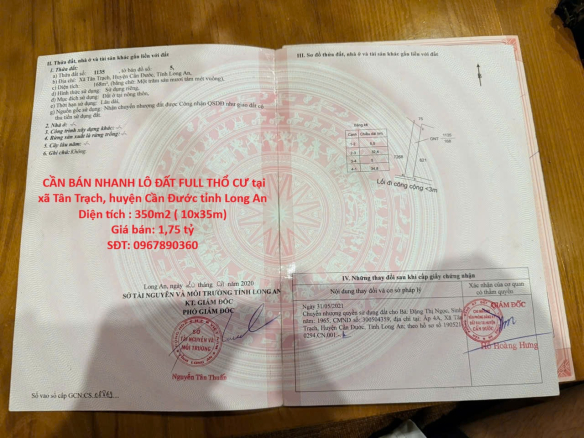 II. Thửa đất, nhà ở và tài sản khác gắn liền với đất
1. Thửa đất:
a) Thửa đất số: 1135, tờ bản đồ số: 5,
b) Địa chỉ: Xã Tân Trạch, Huyện Cần Đước, Tỉnh Long An,
c) Diện tích: 168m², (bằng chữ: Một trăm sáu mươi tám mét vuông),
d) Hình thức sử dụng: Sử dụng riêng,
đ) Mục đích sử dụng: Đất ở tại nông thôn,
e) Thời hạn sử dụng: Lâu dài,
g) Nguồn gốc sử dụng: Nhận chuyển nhượng đất được Công nhận QSDĐ như giao đất có
thu tiền sử dụng đất.
2. Nhà ở: -/-
3. Công trình xây dựng khác: -/-
4. Rừng sản xuất là rừng trồng: -/-
5. Cây lâu năm: -/-
6. Ghi chú: Không
CẦN BÁN NHANH LÔ ĐẤT FULL THỔ CƯ tại
xã Tân Trạch, huyện Cần Đước tỉnh Long An
Diện tích : 350m2 ( 10x35m)
Giá bán: 1,75 tỷ
SĐT: 0967890360
Long An, ngày tháng năm 2020
SỞ TÀI NGUYÊN VÀ MÔI TRƯỜNG TỈNH LONG AN
KT. GIÁM ĐỐC
PHÓ GIÁM ĐỐC
SỞ
TÀI NGUYÊN VÀ
MÔI TRƯỜNG
Nguyễn Tân Thuấn
Số vào sổ cấp GCN:CS
III. Sơ đồ thửa đất, nhà ở và tài sản khác gắn liền với đất
Lối đi công cộng <3m
IV. Những thay đổi sau khi cấp giấy chứng nhận
Nội dung thay đổi và cơ sở pháp lý
Xác nhận của cơ quan
có thẩm quyền
Ngày 31/05/2021
Chuyển nhượng quyền sử dụng đất cho Bà: Đặng Thị Ngọc, Sinh
năm: 1965, CMND số: 300504359, địa chỉ tại: Ấp 4A, Xã Tân
Trạch, Huyện Cần Đước, Tỉnh Long An; theo hồ sơ số
GIÁM ĐỐC
Hồ Hoàng Hưng